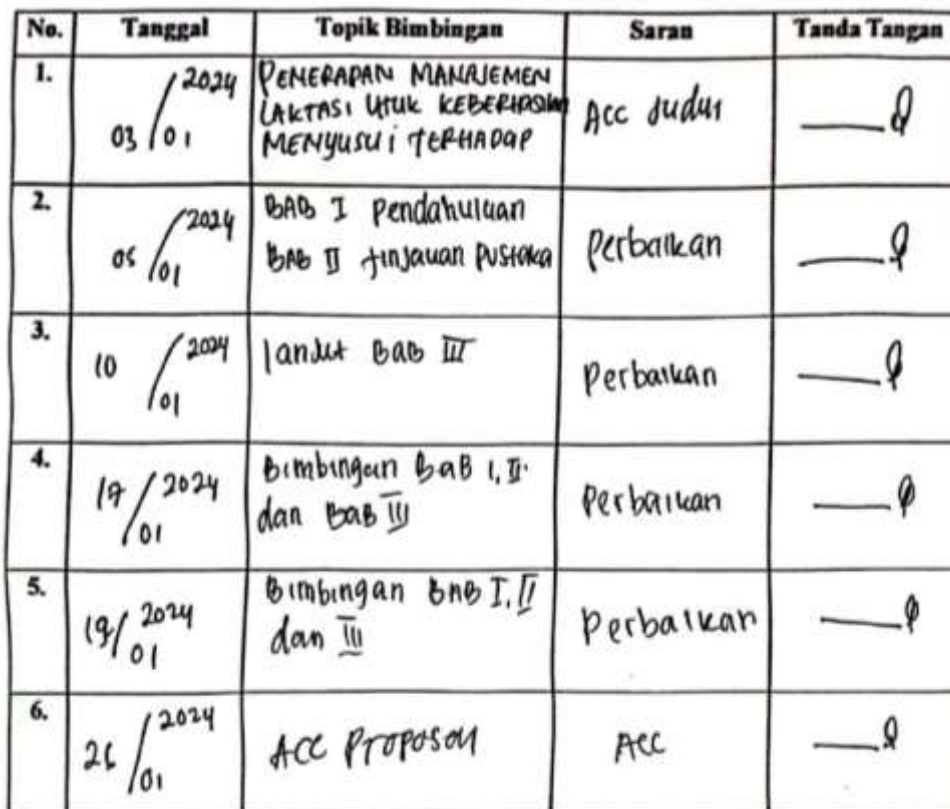 No. Tanggal Topik Bimbingan Saran Tanda Tangan
1. 03/01 2024 PENERAPAN MANAJEMEN
LAKTASI UTUK KEBERHASILAN Acc Judul
MENYUSUI TERHADAP
2. 05/01 2024 BAB I Pendahuluan
BAB II tinjauan Pustaka Perbaikan
3. 10/01 2024 lanjut BAB III Perbaikan
4. 17/01 2024 Bimbingan BAB I, II
dan BAB III Perbaikan
5. 19/01 2024 Bimbingan BAB I, II
dan III Perbaikan
6. 26/01 2024 ACC Proposal Acc